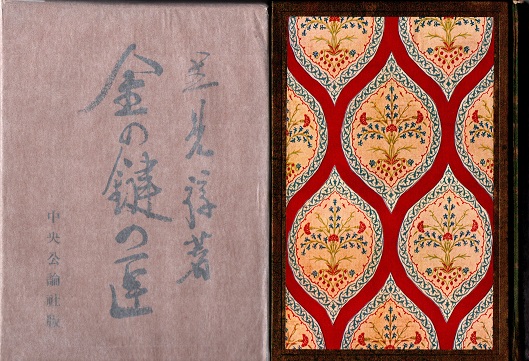 里見弴著
金の鍵の匣
中央公論社版